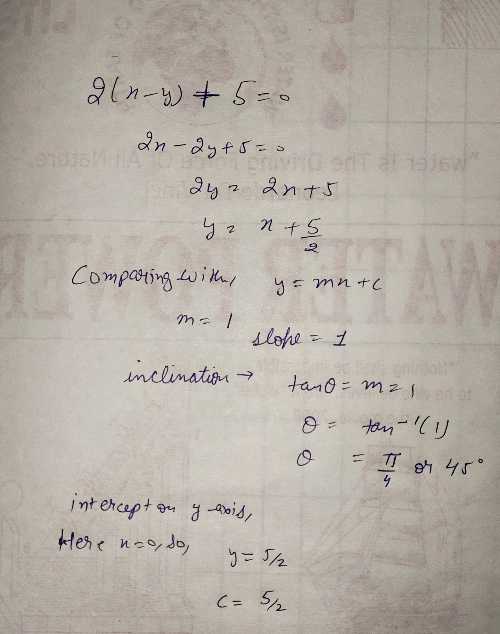 2(x-y) + 5 = 0
2x - 2y + 5 = 0
2y = 2x + 5
y = x + 5/2
Comparing with, y = mx + c
m = 1
slope = 1
inclination → tanθ = m = 1
θ = tan⁻¹(1)
θ = π/4 or 45°
intercept on y-axis,
Here x=0, so, y = 5/2
c = 5/2
"water Is The Driving Force Of All Nature.
WATER POWER